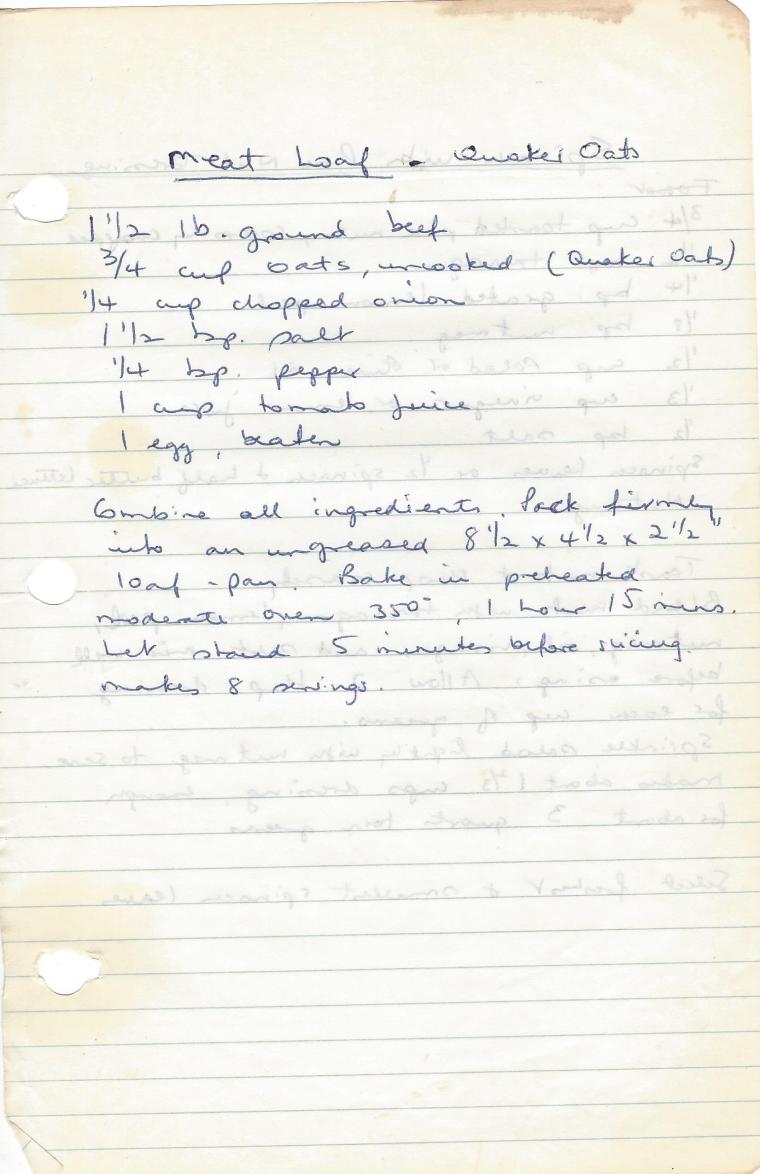 Meat Loaf - Quaker Oats
1 1/2 lb. ground beef
3/4 cup oats, uncooked (Quaker Oats)
1/4 cup chopped onion
1 1/2 tsp. salt
1/4 tsp. pepper
1 cup tomato juice
1 egg, beaten
Combine all ingredients. Pack firmly
into an ungreased 8 1/2 x 4 1/2 x 2 1/2"
loaf-pan. Bake in preheated
moderate oven 350°, 1 hour 15 mins.
Let stand 5 minutes before slicing.
Makes 8 servings.